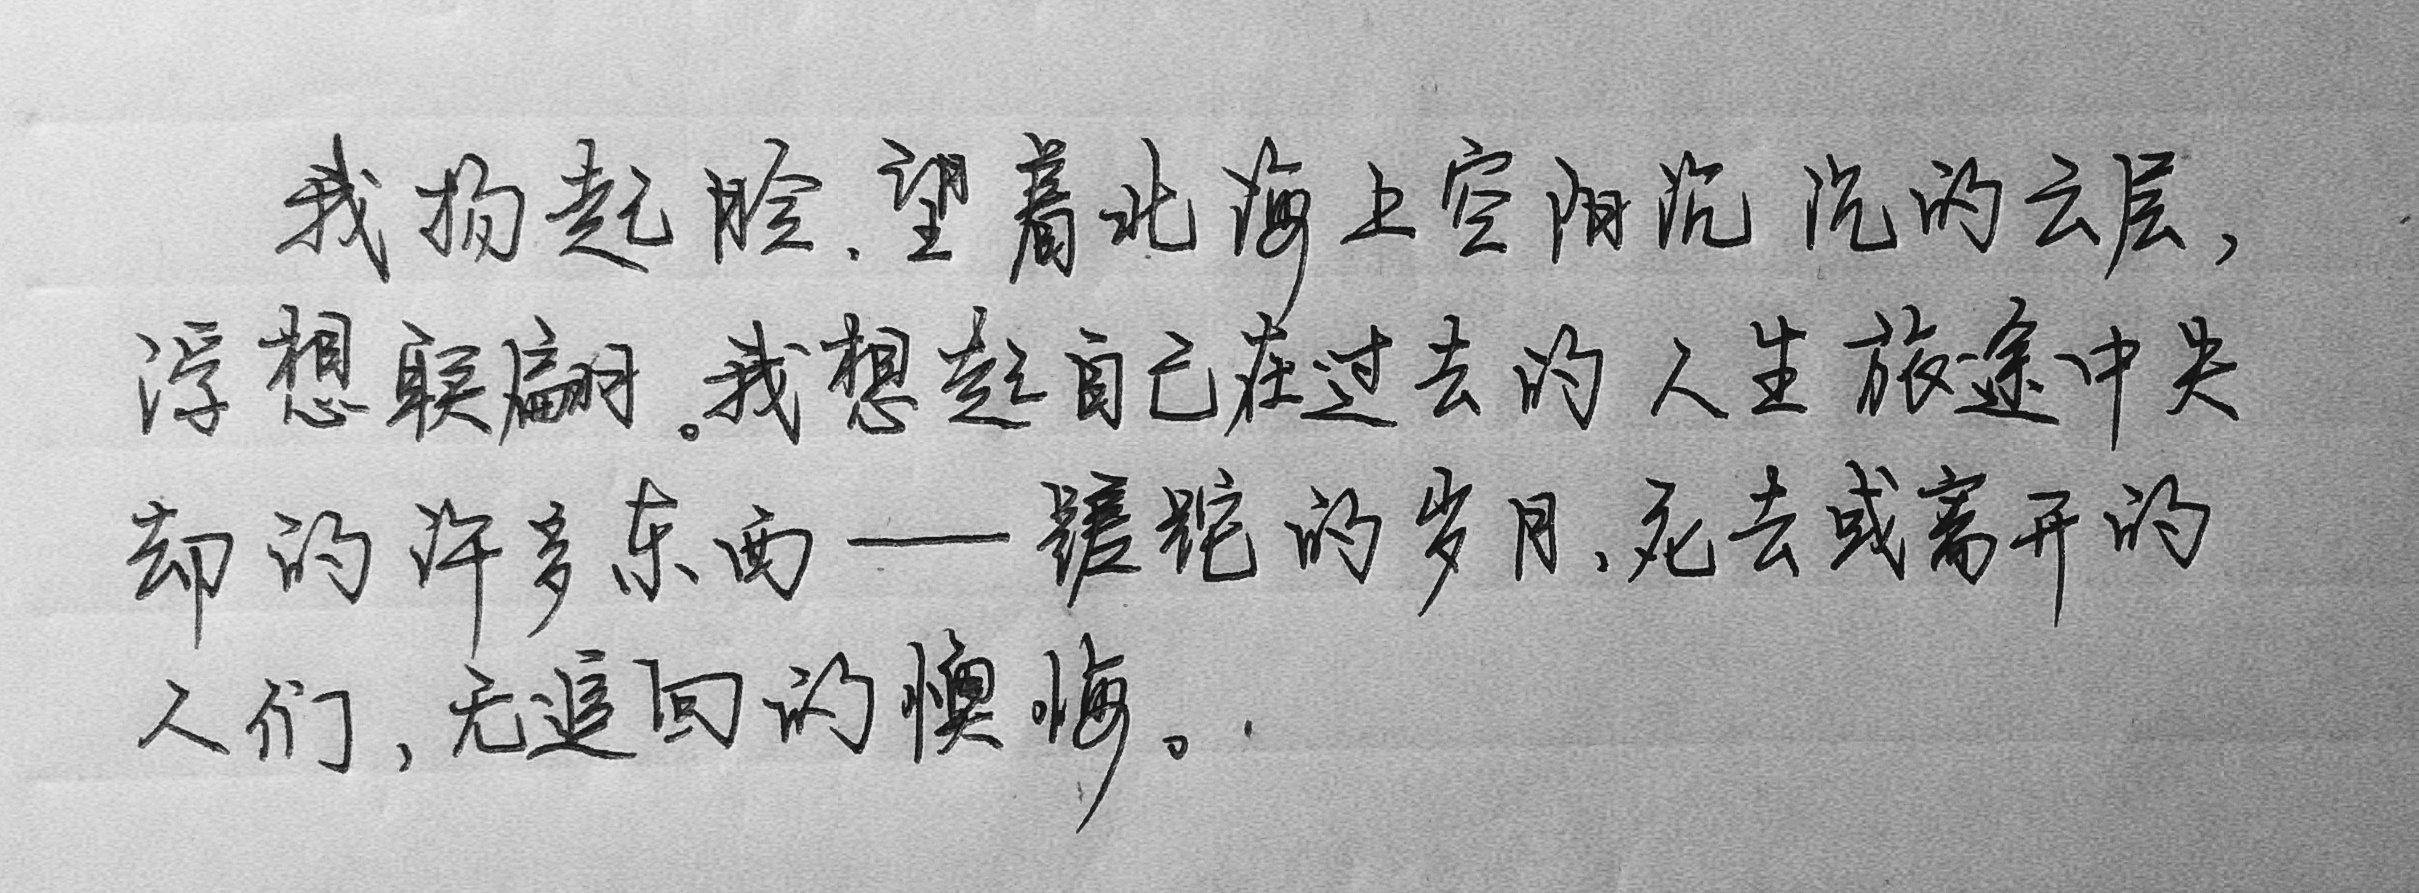 我扬起脸、望着北海上空阳沉沉的云层，
浮想联翩。我想起自己在过去的人生旅途中失
却的许多东西——蹉跎的岁月、死去或离开的
人们，无追回的懊悔。